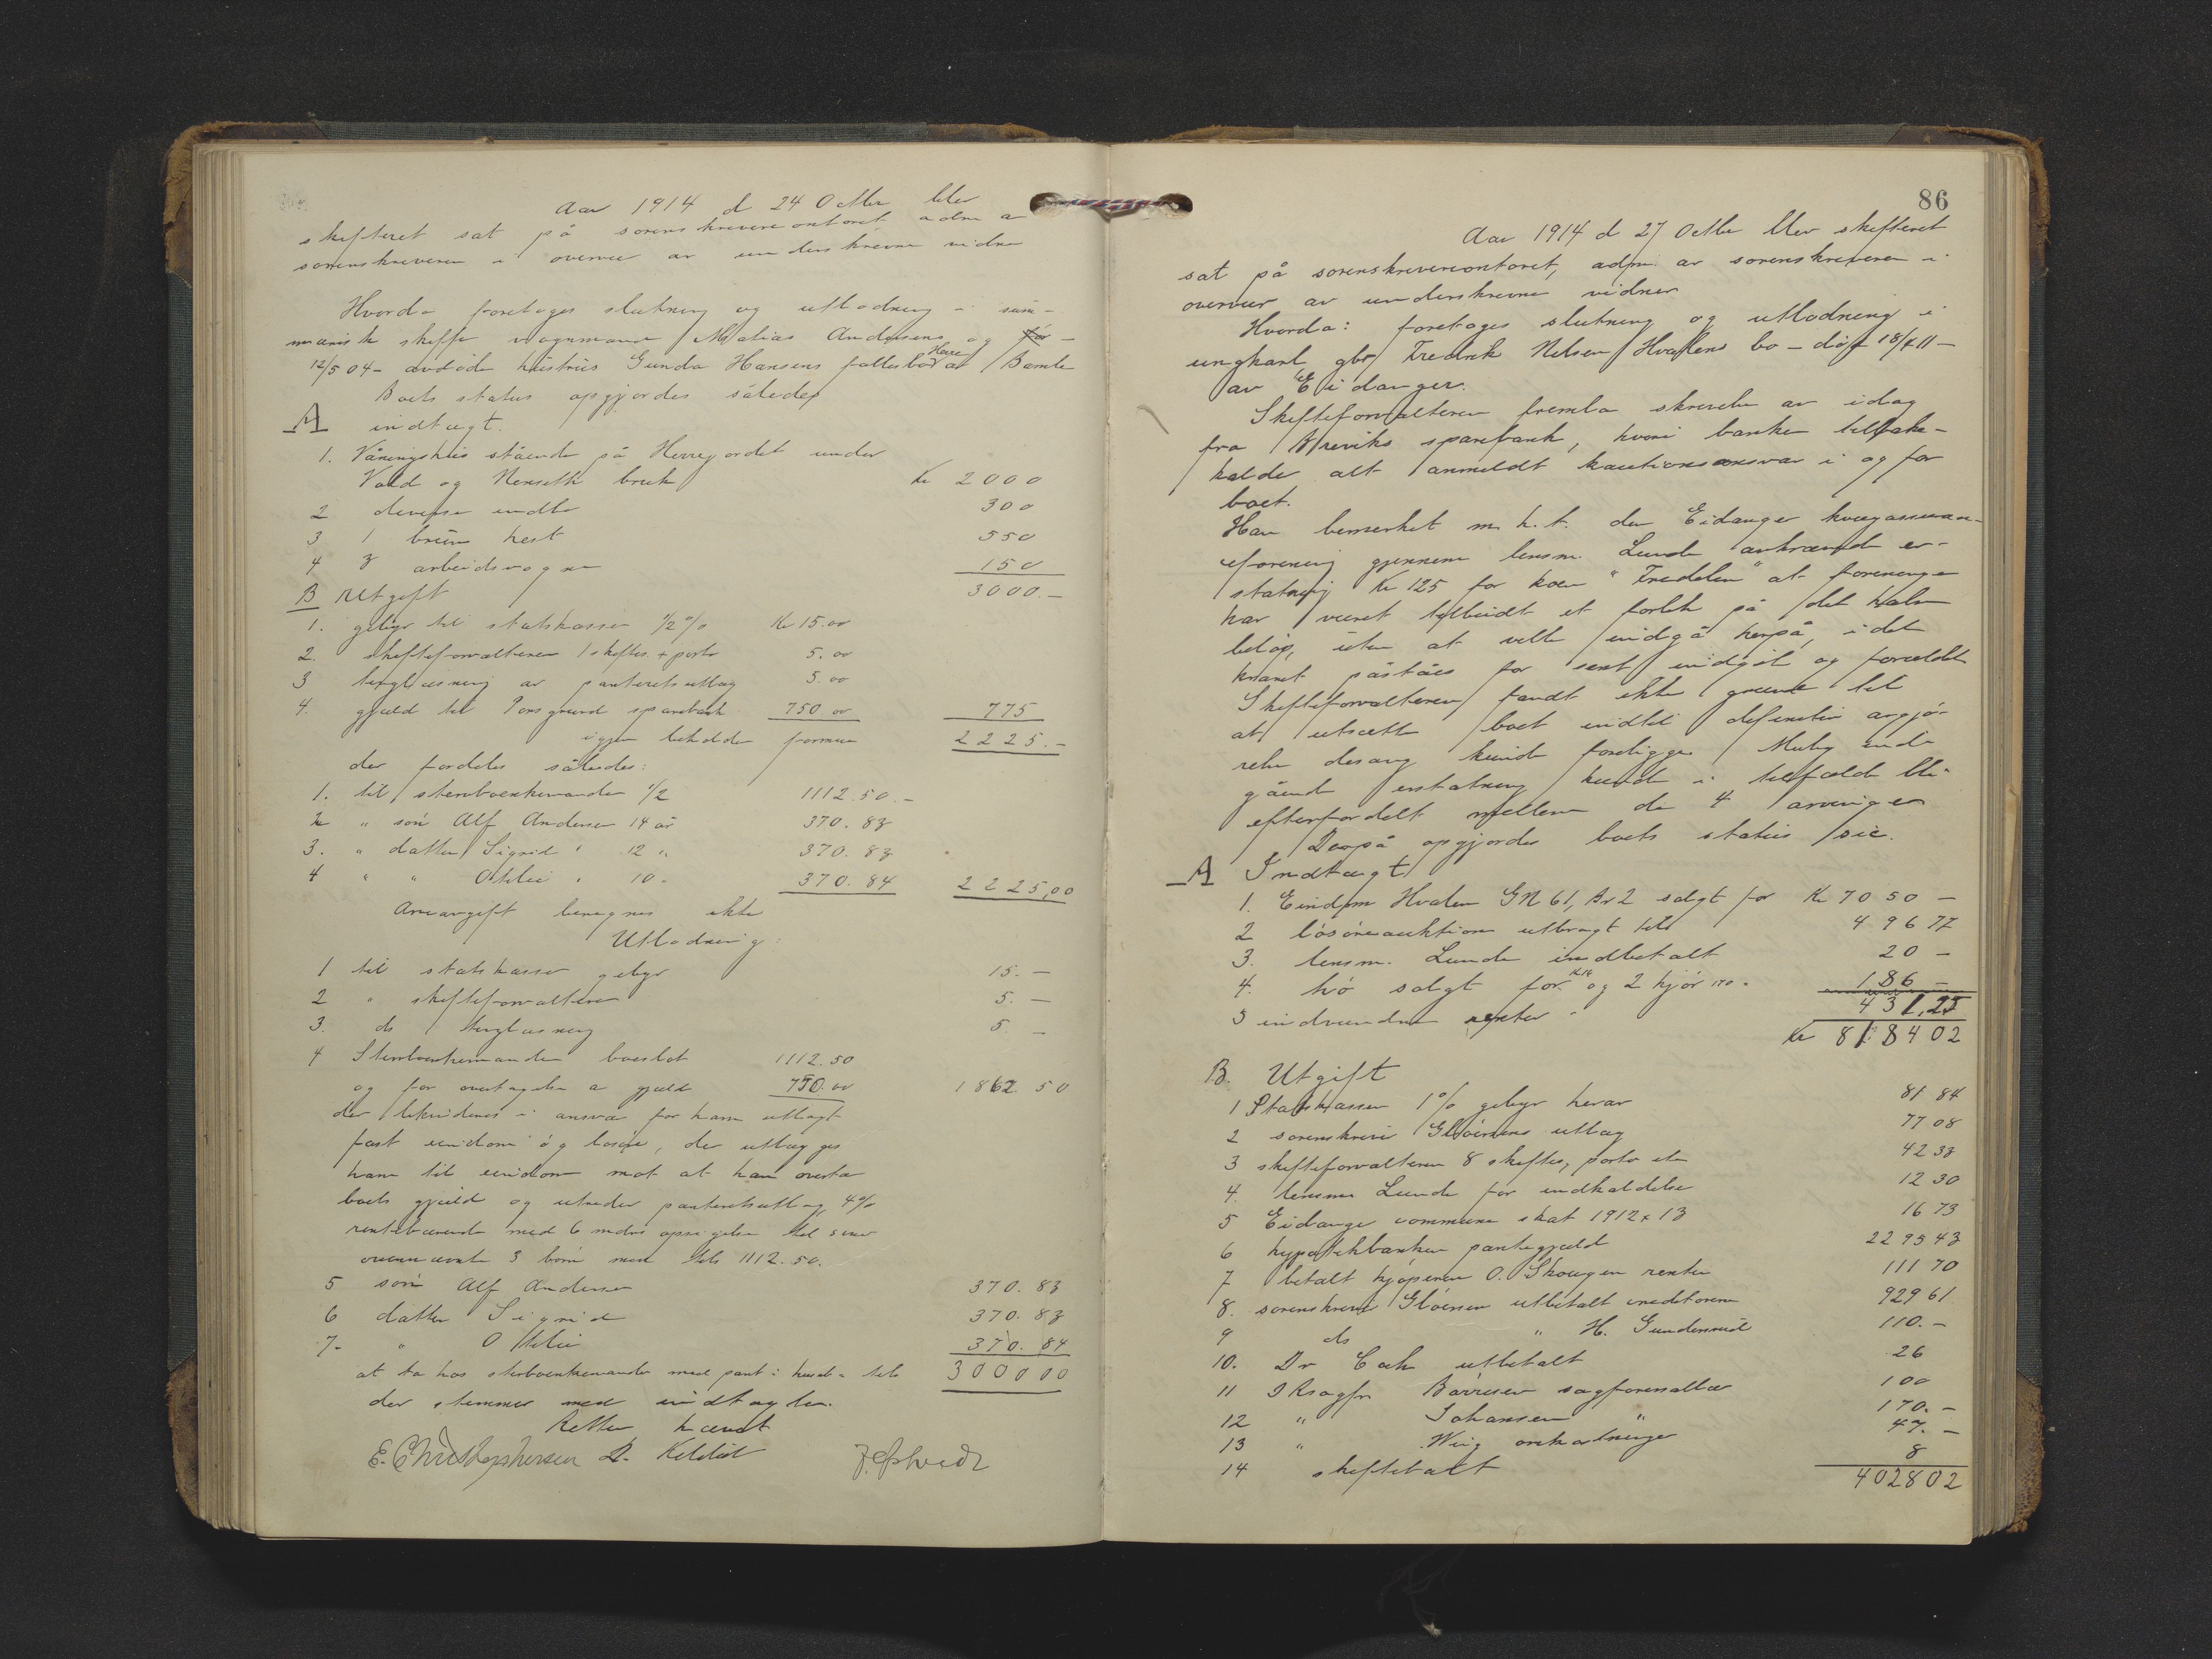 Aar 1914 d 24 Octbr blev
skifteret sat på sorenskrivercontoret adm a
sorenskriveren i overvær av underskrevne vidne
Hvorda foretoges slutning og utlodning i sum-
marisk skifte vognmand Matias Andersens og
12/5 04 - avdöde hustrus Gunda Hansens fællesbo av Herre Bamle
Boets status opgjordes således
A indtægt.
1. Våningshus stående på Herregordet under
Vold og Nenseth bruk Kr 2000
2 diverse indbo 300
3 1 brun hest 550
4 3 arbeidsvogne 150
3000.-
B Utgift
1. gebyr til statskassen 1/2 % Kr 15.00
2. skifteforvalteren 1 skiftes. + porto 5.00
3 tinglæsning av panteretsutlæg 5.00
4. gjæld til Porsgrund sparebank 750 00 775
igjen beholden formue 2225.-
der fordeles således:
1. til sterboenkemanden 1/2 1112.50.-
2 " sön Alf Andersen 14 år 370.83
3. " datter Sigrid " 12 " 370.83
4 " " Otilie " 10 " 370.84 2225,00
Arveavgift beregnes ikke
Utlodning:
1 til statskassen gebyr 15.-
2 " skifteforvalteren 5.-
3. do tinglæsning 5.-
4 Sterboenkemanden boeslot 1112.50
og for overtagelse a gjæld 750.00 1862.50
der likvideres i ansva for ham utlagt
fast eiendom og lösöre, der utlægges
ham til eiendom mot at han overta
boets gjæld og utreder panteretsutlæg 4%
rentebærende med 6 mdrs opsigelse til sine
ovennævnte 3 börn med tils 1112.50.
5 sön Alf Andersen 370.83
6 datter Sigrid 370.83
7- " Otilie 370.84
at ta hos sterboenkemanden med pant i huset = tils 300000
der stemmer med indtægten.
Retten hævet
E. Christophersen
86
Aar 1914 d 27 Octbr blev skifteret
sat på sorenskrivercontoret, adm. av sorenskriveren i
overvær av underskrevne vidner
Hvorda: foretoges slutning og utlodning i
ungkarl gbr Fredrik Nilsen Hvalens bo - död 18/4 11 -
av Eidanger.
Skifteforvalteren fremla skrivelse av idag
fra Breviks sparebank, hvori banken tilbake-
kalder alt anmeldt kautionsansvar i og for
boet.
Han bemerket m. h. t. den Eidanger kvægassuran-
ceforening gjennem lensm. Lunde avkrævede er-
statning Kr 125 for koen "Fredelin" at foreningen
har været tilbudt et forlik på det halve
belöp, uten at ville indgå herpå, idet
kravet påståes for sent indgit og forældet
Skifteforvalteren fandt ikke grund til
at utsætte boet indtil definitiv avgjö-
relse desang. kunde foreligge. Mulig ind-
gående erstatning kunde i tilfælde bli
efterfordelt mellem de 4 arvinger
Derpå opgjordes boets status sic.
A Indtægt
1. Eiendom Hvalen GN 61, Br 2 solgt for Kr 7050 -
2 lösöreauktion utbragt til 496 77
3. lensm. Lunde indbetalt 20 -
4. hö solgt for og 2 kjör 170 - 186 -
5 indvundne renter 431,25
Kr 818402
B. Utgift
1 Statskassen 1% gebyr herav 81 84
2 sorenskriver Glöersens utlæg 77 08
3 skifteforvalteren 8 skiftes., porto etc 42 33
4. lensm Lunde for indkaldelse 12 30
5 Eidanger commune skat 1912 + 13 16 73
6 hypothekbanken pantegjæld 2295 43
7 betalt kjöperen O. Skougen renter 111 70
8. sorenskriver Glöersen utbetalt creditorene 929 61
9 do " H. Gundersrud 110.-
10. Dr Coch utbetalt 26
11 ORsagfn Börresen sagförersallær 100
12 " Johansen " 170.-
13 " Wiig omkostninger 47.-
14 skiftetakst 8
402802